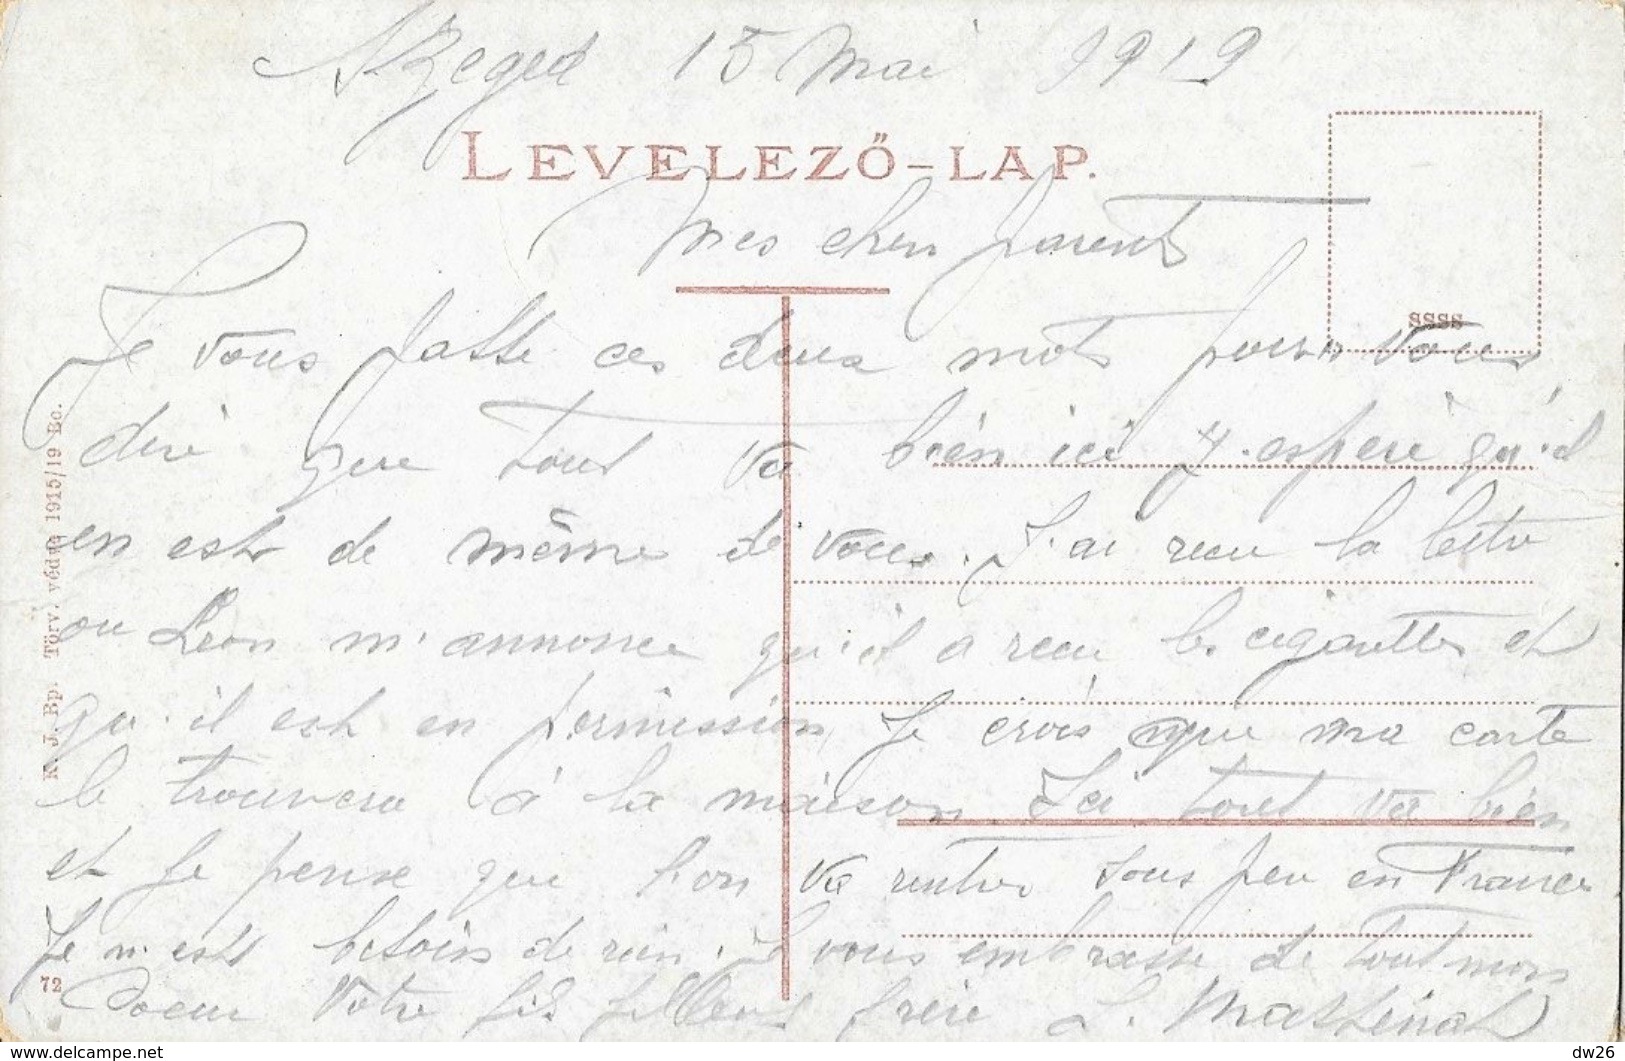 Szeged 15 Mai 1919
LEVELEZŐ-LAP.
Mes chers parents
ssss
Je vous fasse ces deux mots pour vous
dire que tout va bien ici J'espère qu'il
en est de même de vous. J'ai recu la lettre
ou Léon m'annonce qu'il a recu les cigarettes et
qu'il est en permission, Je crois que ma carte
le trouvera à la maison. Ici tout va bien
et Je pense que l'on va rentrer sous peu en France
Je n'est besoin de rien. Je vous embrasse de tout mon
Coeur Votre fils filleul frère L.
K. J. Bp. Törv. védve 1915/19 Bo.
72
dw26